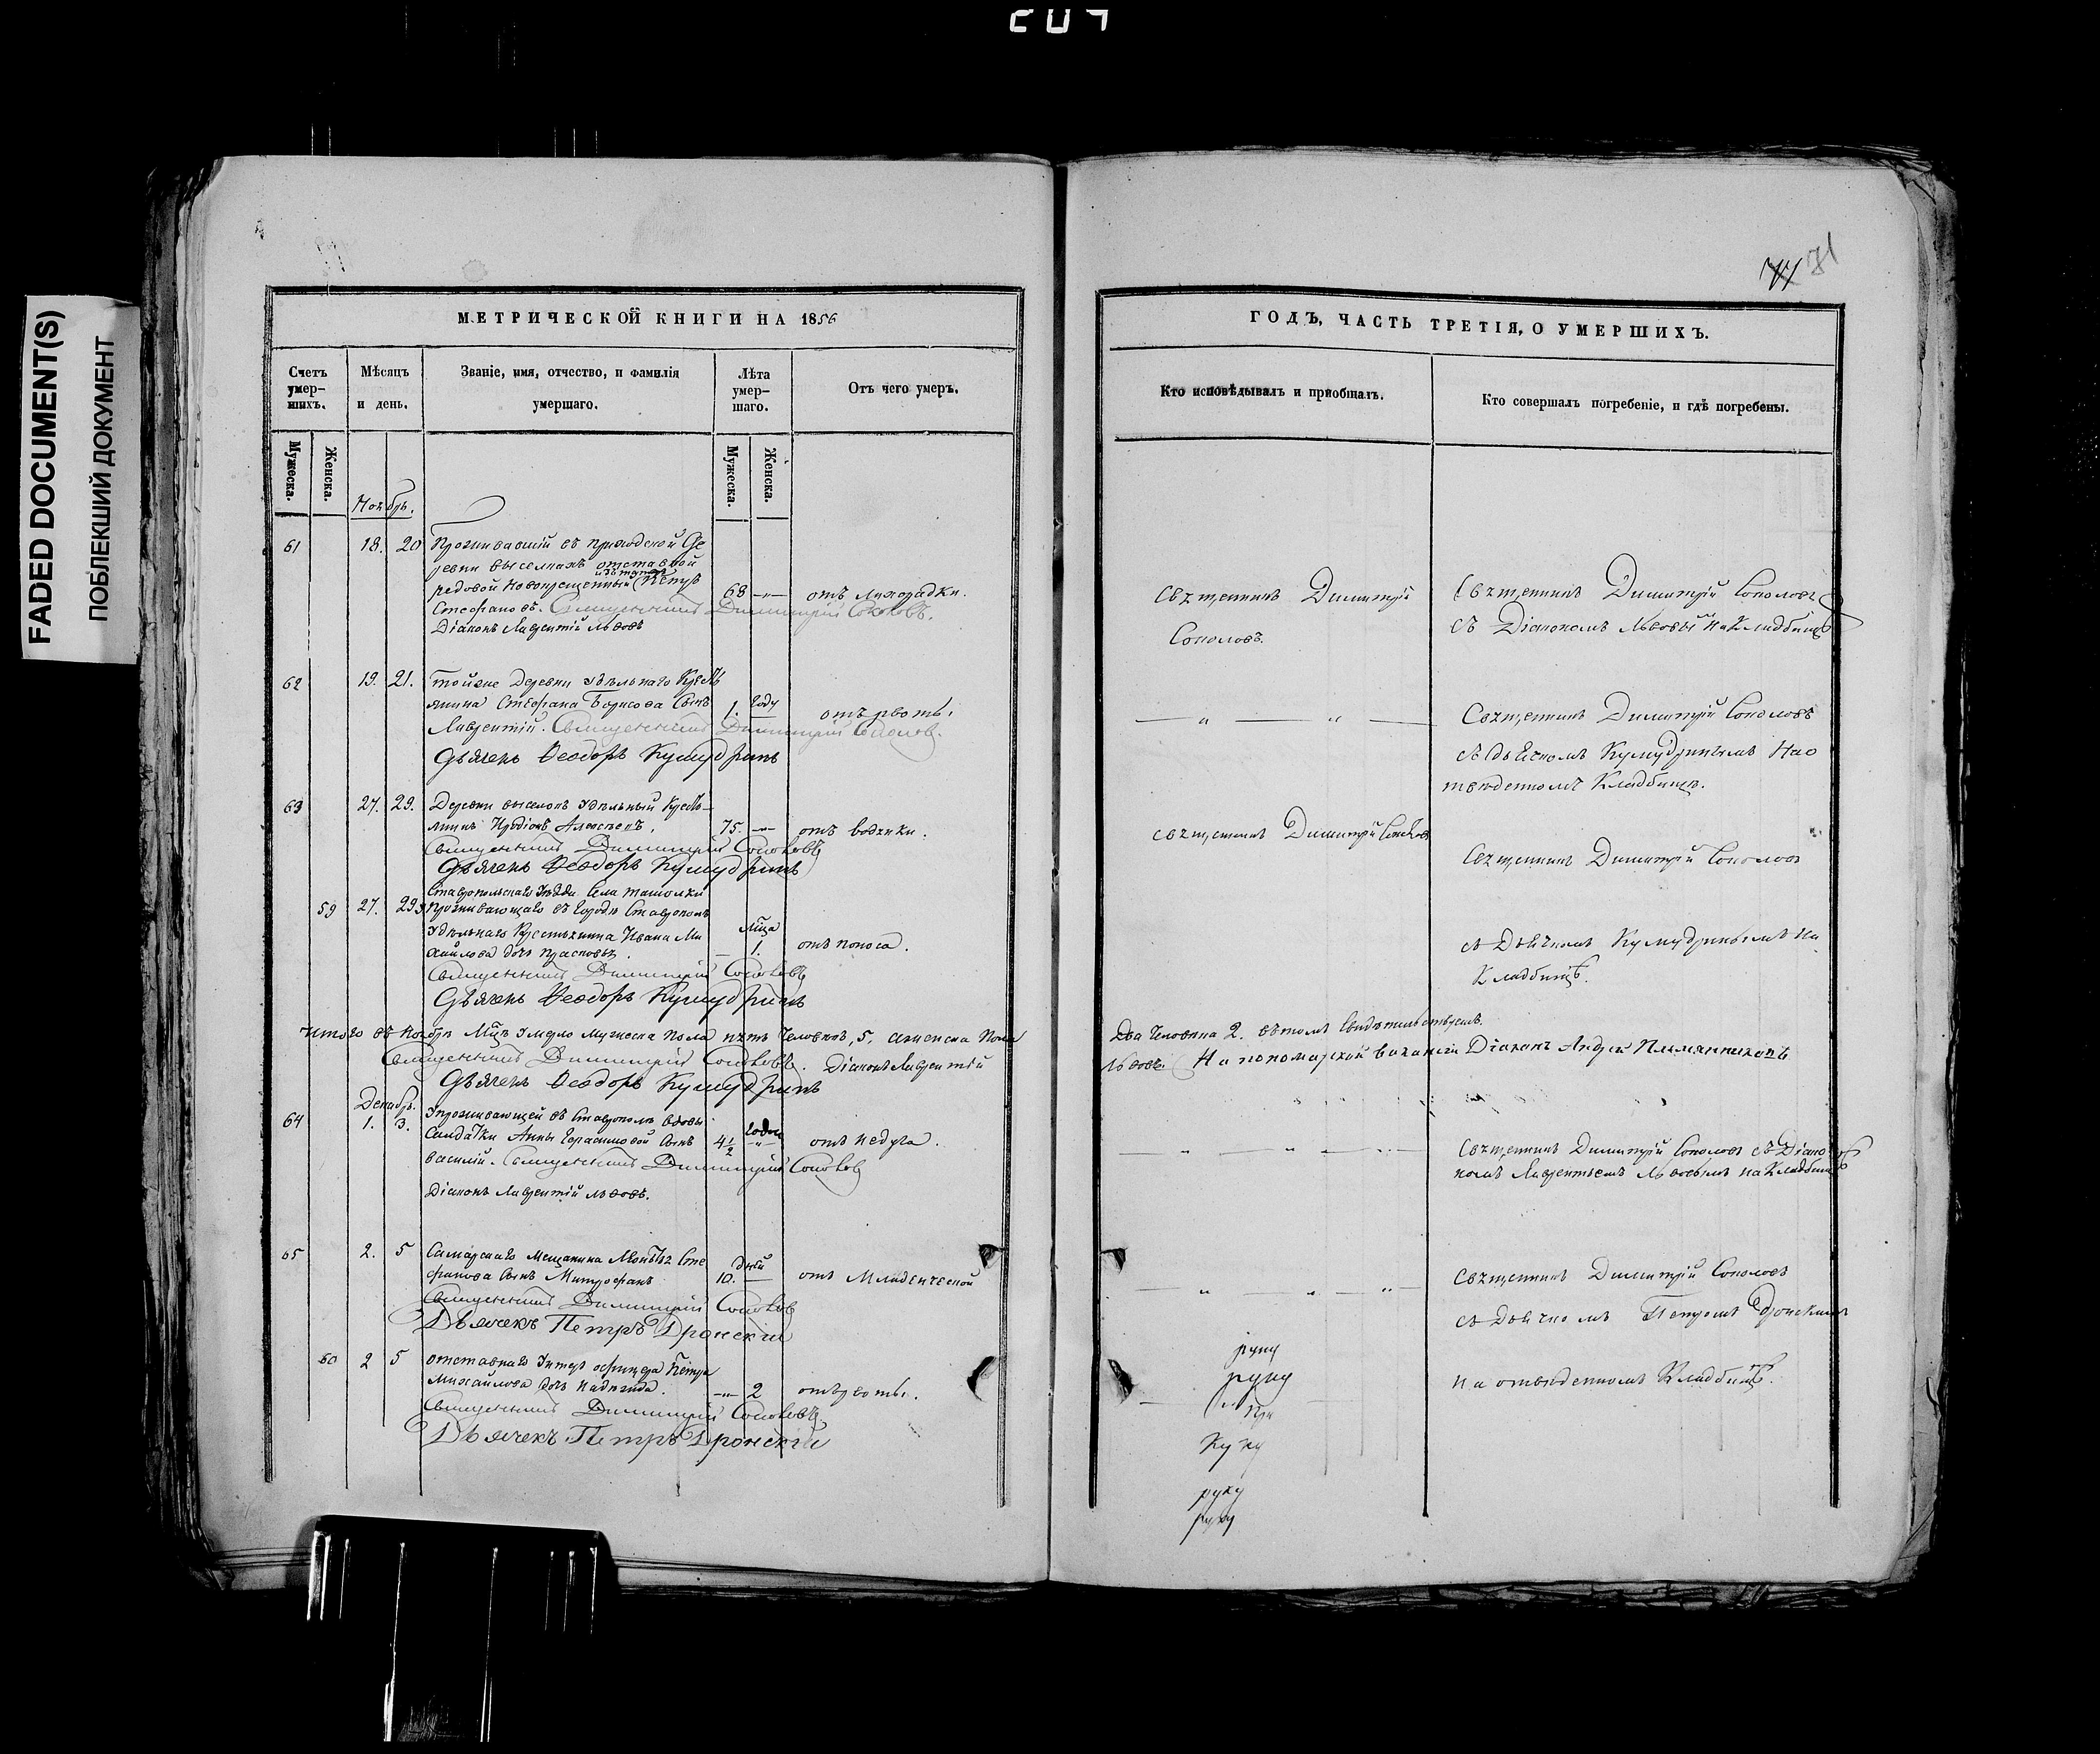 FADED DOCUMENT(S)
ПОБЛЕКШИЙ ДОКУМЕНТ
МЕТРИЧЕСКОЙ КНИГИ НА 1856
Счетъ умер-шихъ.
Мѣсяцъ и день.
Званіе, имя, отчество, и фамилія умершаго.
Лѣта умер-шаго.
Отъ чего умеръ.
Мужеска. Женска.
Мужеска. Женска.
Ноябрь.
61 18. 20 Проживавшій въ приходской де
ревни выселкахъ отставной
рядовой новокрещенный Петръ
68 — отъ лихорадки.
Стефановъ. Священникъ Димитрій Соколовъ.
Діаконъ Лаврентій Львовъ
62 19. 21. тойже деревни удѣльнаго Крестъ
янина Стефана Борисова сынъ
1. году отъ рвоты.
Лаврентій. Священникъ Димитрій Соколовъ.
Дьячекъ Ѳеодоръ Кумудринъ
63 27. 29. Деревни выселокъ удѣльный Крестъ-
янинъ Иродіонъ Алексѣевъ. 75. — отъ водянки.
Священникъ Димитрій Соколовъ
Дьячекъ Ѳеодоръ Кумудринъ
Ставропольскаго уѣзда села Ташолки
59 27. 29 Проживающаго въ городѣ Ставрополѣ
удѣльнаго Крестьянина Ивана Ми
хайлова дочь Прасковья.
— 1. мѣца отъ поноса.
Священникъ Димитрій Соколовъ
Дьячекъ Ѳеодоръ Кумудринъ
Итого въ ноябрѣ мцѣ умерло мужеска пола пять человѣкъ, 5, аженска пола
Священникъ Димитрій Соколовъ. Діаконъ Лаврентій
Дьячекъ Ѳеодоръ Кумудринъ
Декабрь.
64 1. 3. Упроживающей въ Ставрополѣ вдовы
Солдатки Анны Герасимовой сынъ 4 1/2 годы отъ недуга.
Василій. Священникъ Димитрій Соколовъ
Діаконъ Лаврентій Львовъ.
65 2. 5 Самарскаго мещанина Сте
фанова сынъ Митрофанъ 10. дней отъ младенческой
Священникъ Димитрій Соколовъ
Дьячекъ Петръ Дронскій
60 2 5 отставнаго унтеръ офицера Петра
Михайлова дочь Надежда. — 2 отъ рвоты.
Священникъ Димитрій Соколовъ
Дьячекъ Петръ Дронскій
71
ГОДЪ, ЧАСТЬ ТРЕТІЯ, О УМЕРШИХЪ.
Кто исповѣдывалъ и пріобщалъ.
Кто совершалъ погребеніе, и гдѣ погребены.
Священникъ Димитрій
Соколовъ.
Священникъ Димитрій Соколовъ
съ Діакономъ Львовымъ на кладбищѣ
Священникъ Димитрій Соколовъ
съ дьячкомъ Кумудринымъ на о
тведенномъ кладбищѣ.
священникъ Димитрій Соколовъ
Священникъ Димитрій Соколовъ
съ дьячкомъ Кумудринымъ на
кладбищѣ.
два человѣка 2. въ томъ свидѣтельствуемъ.
Львовъ. На пономарской ваканси Діаконъ Андрей Племянниковъ
Священникъ Димитрій Соколовъ съ Діако
номъ Лаврентьемъ Львовымъ на кладбищѣ
Священникъ Димитрій Соколовъ
съ дьячкомъ Петромъ Дронскимъ
на отведенномъ кладбищѣ.
руку
руку
Куку
руку
руку